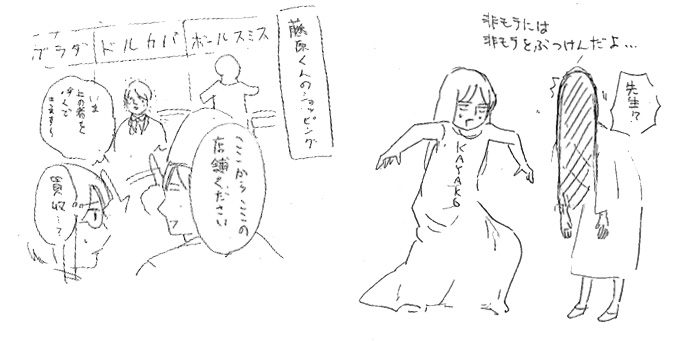 藤原くんのショッピング
ボールスミス
ドルカバ
グラダ
ここからここの
店舗ください
いま
上の者を
呼んで
きます
買収…?
非モラには
非モラをぶつけんだよ…
先生!?
KAYAKO